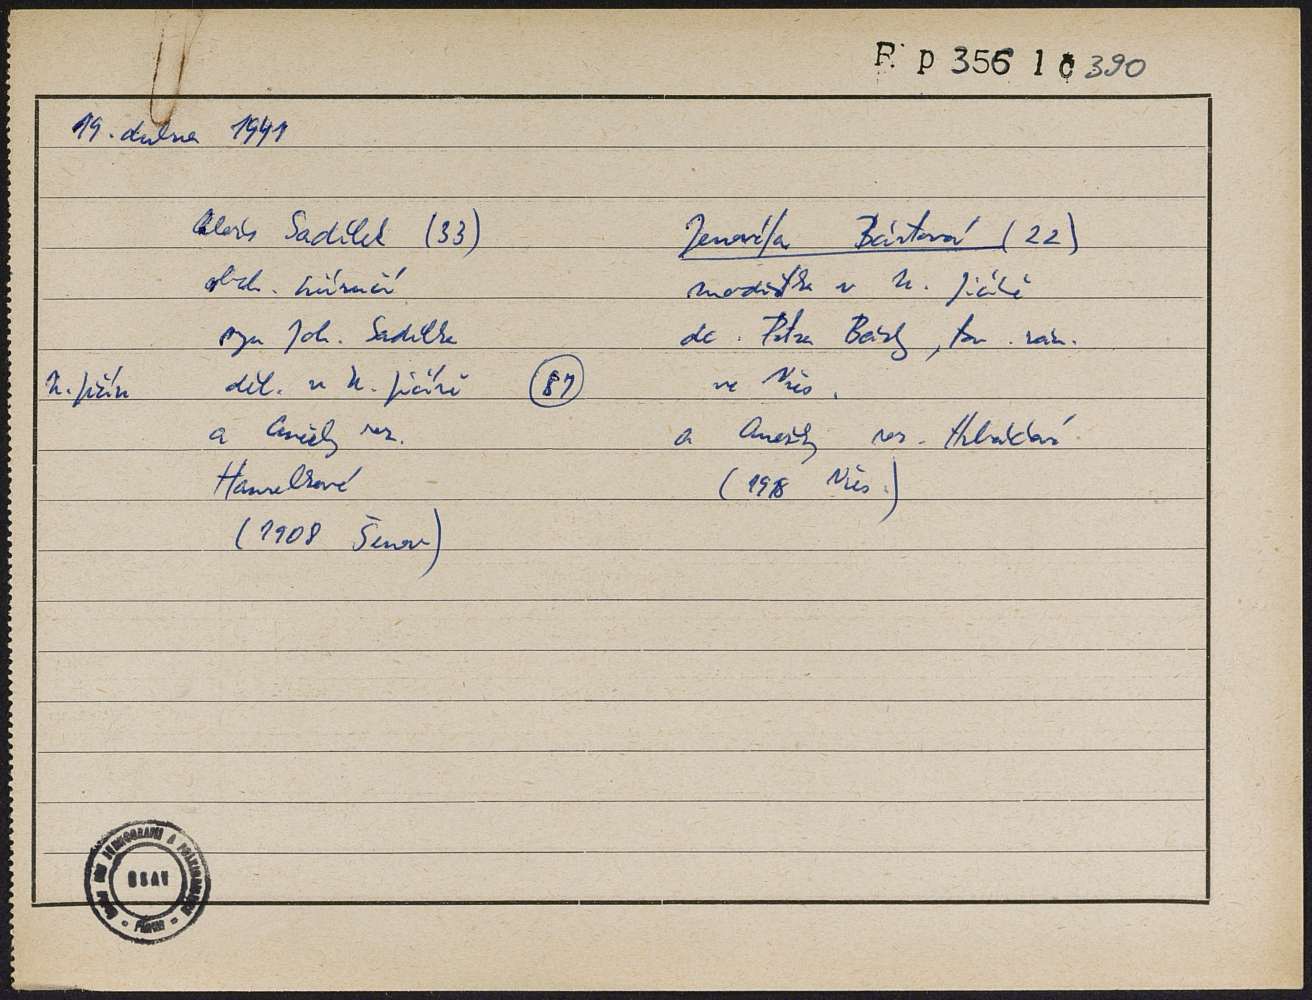 F. p 356 1 c 390
19. dubna 1941
Alois Sadílek (33)
obch.
syn Joh. Sadílka
N. Jičín děl. v N. Jičíně 87
a Anežky roz.
Hanzelkové
(1908 Šenov)
Jenovéfa Bártová (22)
modistka v N. Jičíně
dc. Petra Bárty,
ve Vřes.
a Anežky roz.
(1918 Vřes.)
ČSAV